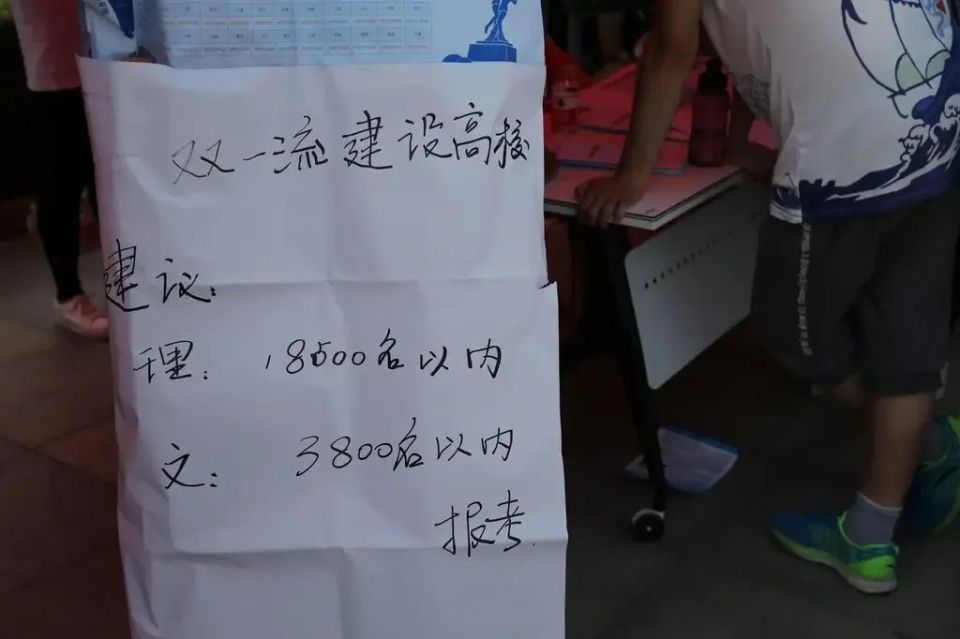 双一流建设高校
建议:
理: 18500名以内
文: 3800名以内
报考.